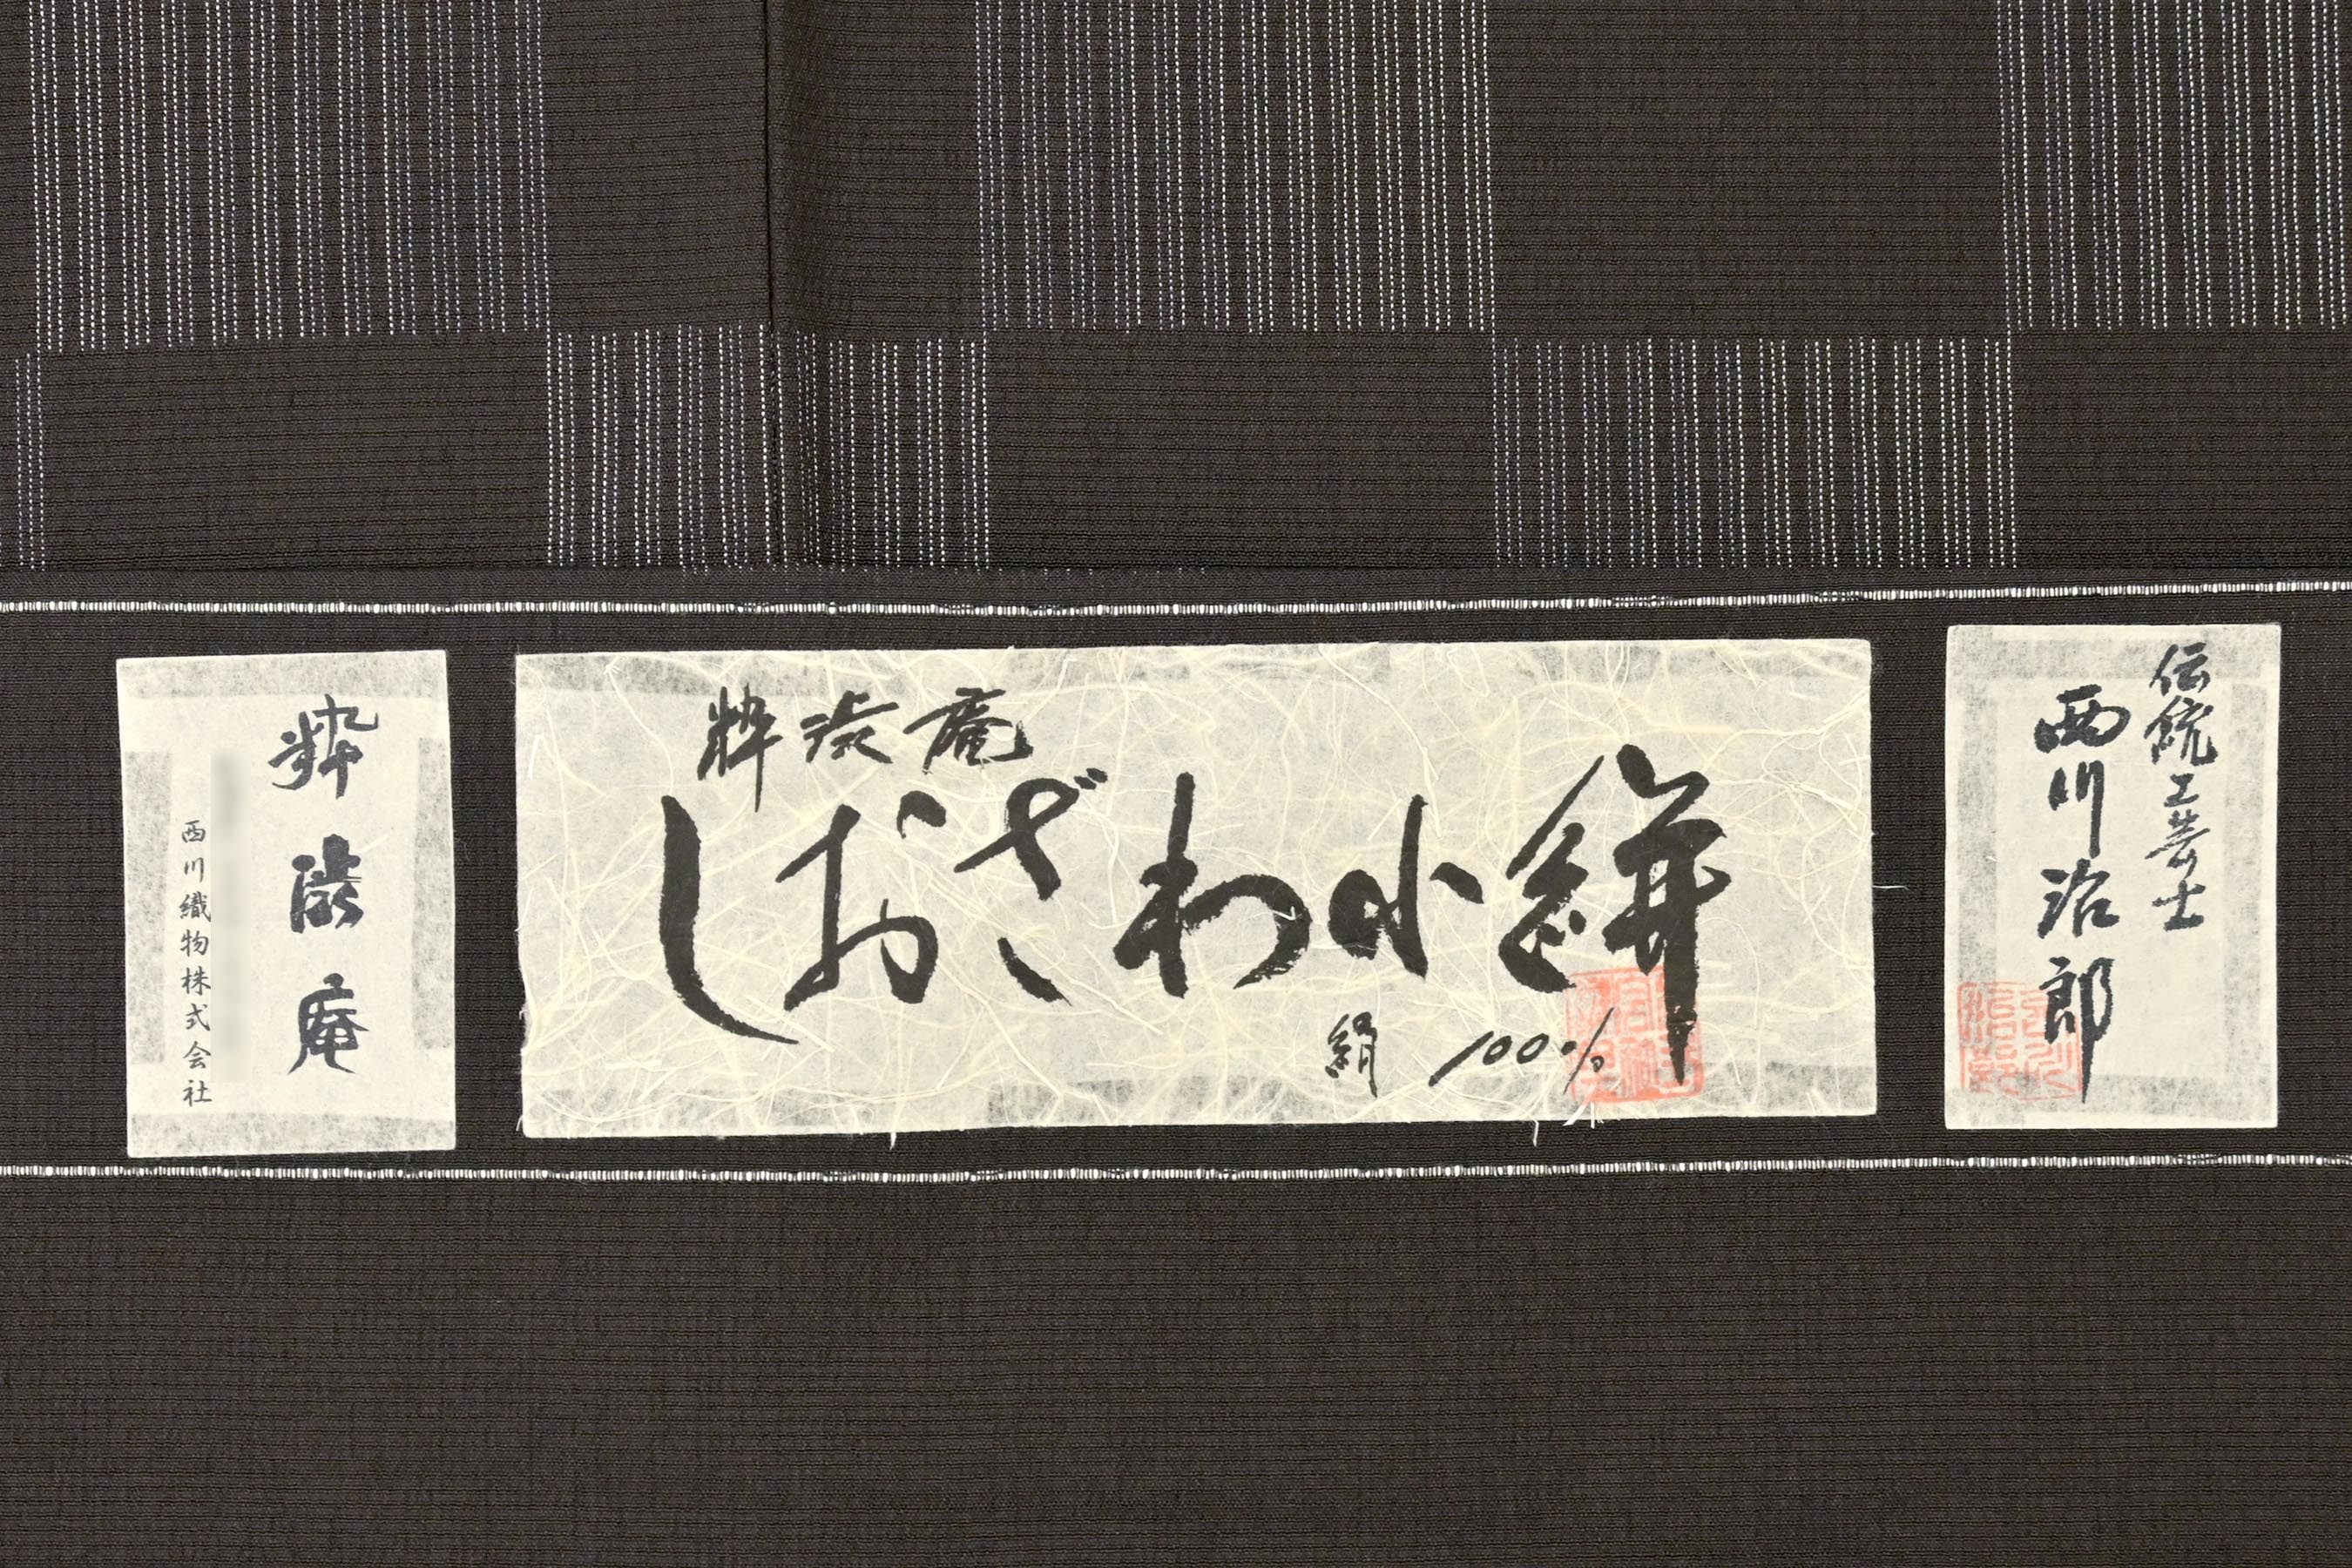 粋澁庵
西川織物株式会社
粋澁庵
しおざわ小絣
絹 100%
伝統工芸士
西川治郎